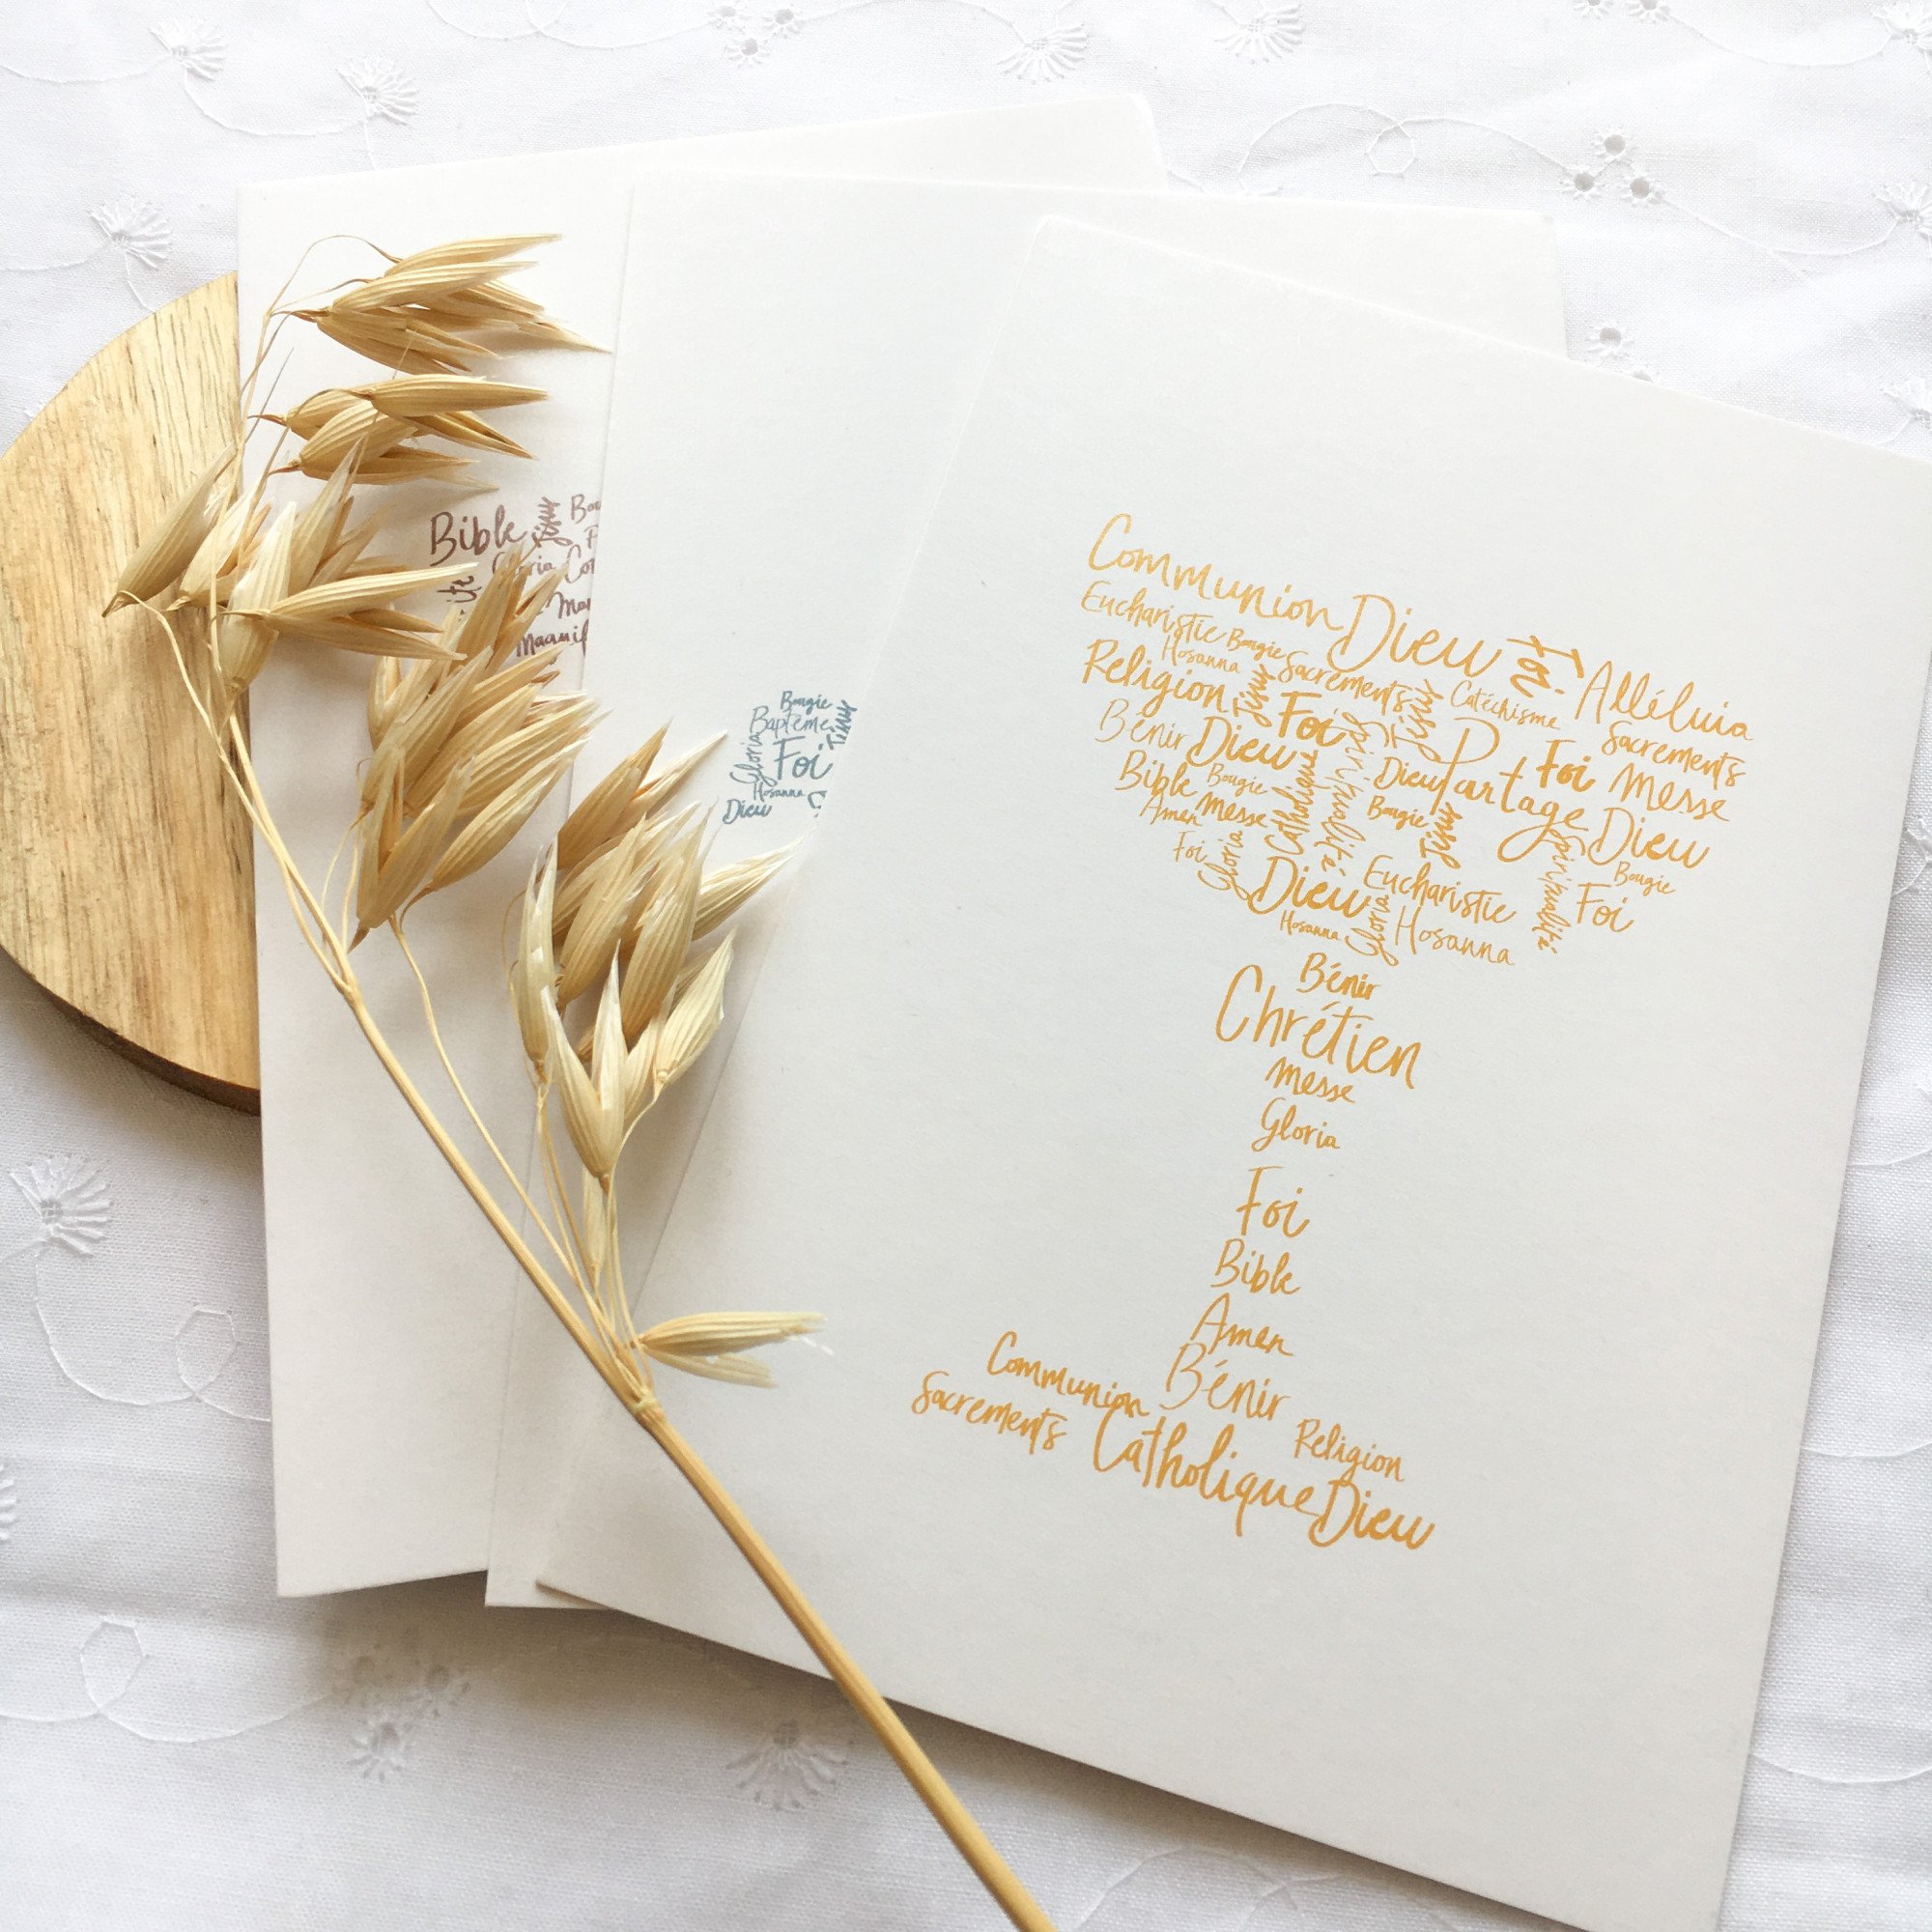 Bible Jésus
Gloria
Bougie
Baptême Jésus
Gloria Foi
Hosanna
Dieu
Communion Dieu Foi Alléluia
Eucharistie Bougie Sacrements Catéchisme Sacrements
Hosanna
Religion Jésus Foi Spiritualité Jésus Partage Foi Messe
Bénir Dieu Catholique Dieu Dieu
Bible Bougie Bougie Jésus
Amen Messe Spiritualité Bougie
Foi Gloria Dieu Eucharistie Foi
Hosanna Gloria Hosanna
Bénir
Chrétien
Messe
Gloria
Foi
Bible
Amen
Communion Bénir Religion
Sacrements Catholique Dieu